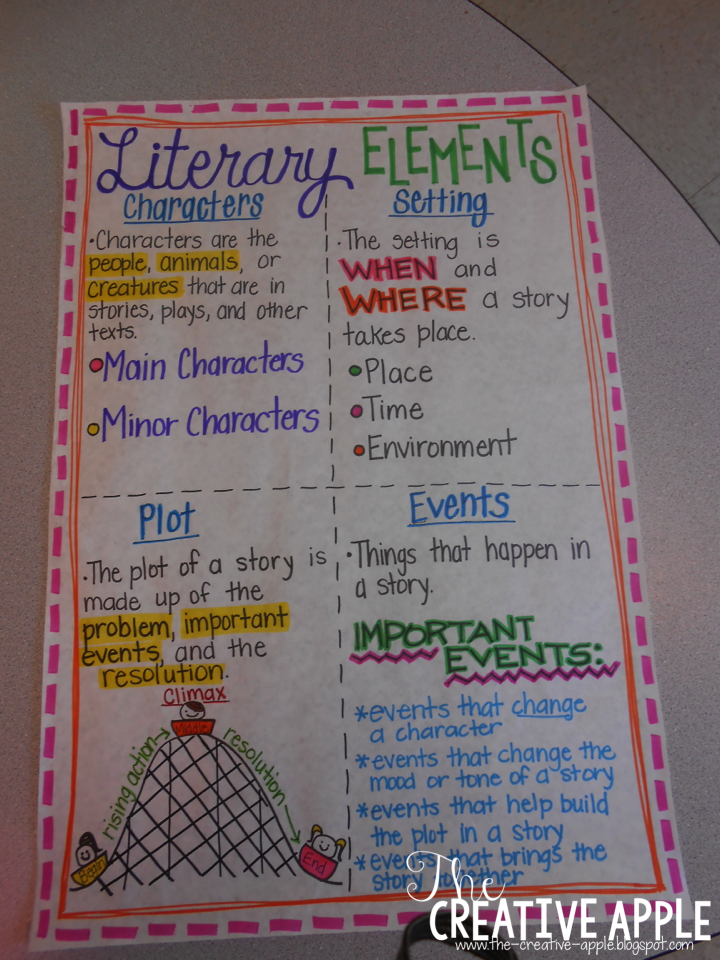 Literary ELEMENTS
Characters
•Characters are the
people, animals, or
creatures that are in
stories, plays, and other
texts.
•Main Characters
•Minor Characters
Setting
•The setting is
WHEN and
WHERE a story
takes place.
•Place
•Time
•Environment
Plot
•The plot of a story is
made up of the
problem, important
events, and the
resolution.
Climax
Middle
rising action
resolution
Begin
End
Events
•Things that happen in
a story.
IMPORTANT
EVENTS:
*events that change
a character
*events that change the
mood or tone of a story
*events that help build
the plot in a story
*events that brings the
story together
The
CREATIVE APPLE
www.the-creative-apple.blogspot.com